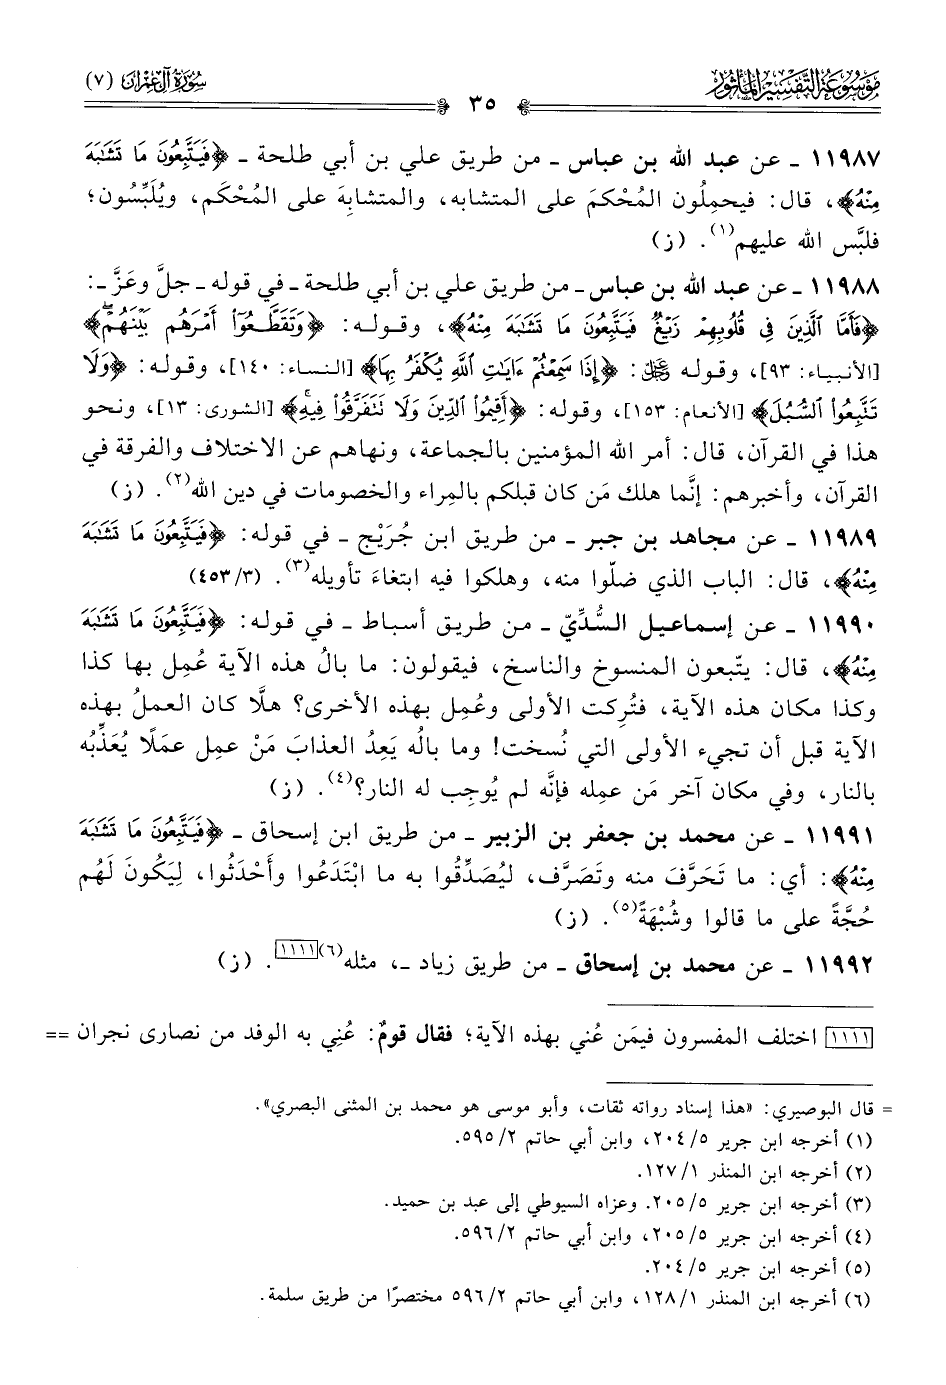 موسوعة التفسير المأثور
٣٥
سورة آل عمران (٧)
١١٩٨٧ ـ عن عبد الله بن عباس ـ من طريق علي بن أبي طلحة ـ ﴿فَيَتَّبِعُونَ مَا تَشَٰبَهَ
مِنْهُ﴾، قال: فيحمِلُون المُحْكمَ على المتشابه، والمتشابِهَ على المُحْكم، ويُلَبِّسُون؛
فلبَّس الله عليهم(١). (ز)
١١٩٨٨ ـ عن عبد الله بن عباس ـ من طريق علي بن أبي طلحة ـ في قوله ـ جلَّ وعَزَّ ـ:
﴿فَأَمَّا ٱلَّذِينَ فِي قُلُوبِهِمْ زَيْغٌ فَيَتَّبِعُونَ مَا تَشَٰبَهَ مِنْهُ﴾، وقوله: ﴿وَتَقَطَّعُوٓا۟ أَمْرَهُم بَيْنَهُمْ﴾
[الأنبياء: ٩٣]، وقوله ﷻ: ﴿إِذَا سَمِعْتُمْ ءَايَٰتِ ٱللَّهِ يُكْفَرُ بِهَا﴾ [النساء: ١٤٠]، وقوله: ﴿وَلَا
تَتَّبِعُوا۟ ٱلسُّبُلَ﴾ [الأنعام: ١٥٣]، وقوله: ﴿أَقِيمُوا۟ ٱلدِّينَ وَلَا تَتَفَرَّقُوا۟ فِيهِ﴾ [الشورى: ١٣]، ونحو
هذا في القرآن، قال: أمر الله المؤمنين بالجماعة، ونهاهم عن الاختلاف والفرقة في
القرآن، وأخبرهم: إنَّما هلك مَن كان قبلكم بالمِراء والخصومات في دين الله(٢). (ز)
١١٩٨٩ ـ عن مجاهد بن جبر ـ من طريق ابن جُرَيْج ـ في قوله: ﴿فَيَتَّبِعُونَ مَا تَشَٰبَهَ
مِنْهُ﴾، قال: الباب الذي ضلّوا منه، وهلكوا فيه ابتغاءَ تأويله(٣). (٤٥٣/٣)
١١٩٩٠ ـ عن إسماعيل السُّدِّيّ ـ من طريق أسباط ـ في قوله: ﴿فَيَتَّبِعُونَ مَا تَشَٰبَهَ
مِنْهُ﴾، قال: يتّبعون المنسوخ والناسخ، فيقولون: ما بالُ هذه الآية عُمِل بها كذا
وكذا مكان هذه الآية، فتُرِكت الأولى وعُمِل بهذه الأخرى؟ هلَّا كان العملُ بهذه
الآية قبل أن تجيء الأولى التي نُسخت! وما بالُه يَعِدُ العذابَ مَنْ عمِل عمَلًا يُعَذِّبُه
بالنار، وفي مكان آخر مَن عمِله فإنَّه لم يُوجِب له النار؟(٤). (ز)
١١٩٩١ ـ عن محمد بن جعفر بن الزبير ـ من طريق ابن إسحاق ـ ﴿فَيَتَّبِعُونَ مَا تَشَٰبَهَ
مِنْهُ﴾: أي: ما تَحَرَّفَ منه وتَصَرَّف، ليُصَدِّقُوا به ما ابْتَدَعُوا وأَحْدَثُوا، لِيَكُونَ لَهُم
حُجَّةً على ما قالوا وشُبْهَةً(٥). (ز)
١١٩٩٢ ـ عن محمد بن إسحاق ـ من طريق زياد ـ، مثله(٦)[١١١١]. (ز)
[١١١١] اختلف المفسرون فيمَن عُني بهذه الآية؛ فقال قومٌ: عُنِي به الوفد من نصارى نجران ==
= قال البوصيري: «هذا إسناد رواته ثقات، وأبو موسى هو محمد بن المثنى البصري».
(١) أخرجه ابن جرير ٢٠٤/٥، وابن أبي حاتم ٥٩٥/٢.
(٢) أخرجه ابن المنذر ١٢٧/١.
(٣) أخرجه ابن جرير ٢٠٥/٥. وعزاه السيوطي إلى عبد بن حميد.
(٤) أخرجه ابن جرير ٢٠٥/٥، وابن أبي حاتم ٥٩٦/٢.
(٥) أخرجه ابن جرير ٢٠٤/٥.
(٦) أخرجه ابن المنذر ١٢٨/١، وابن أبي حاتم ٥٩٦/٢ مختصرًا من طريق سلمة.